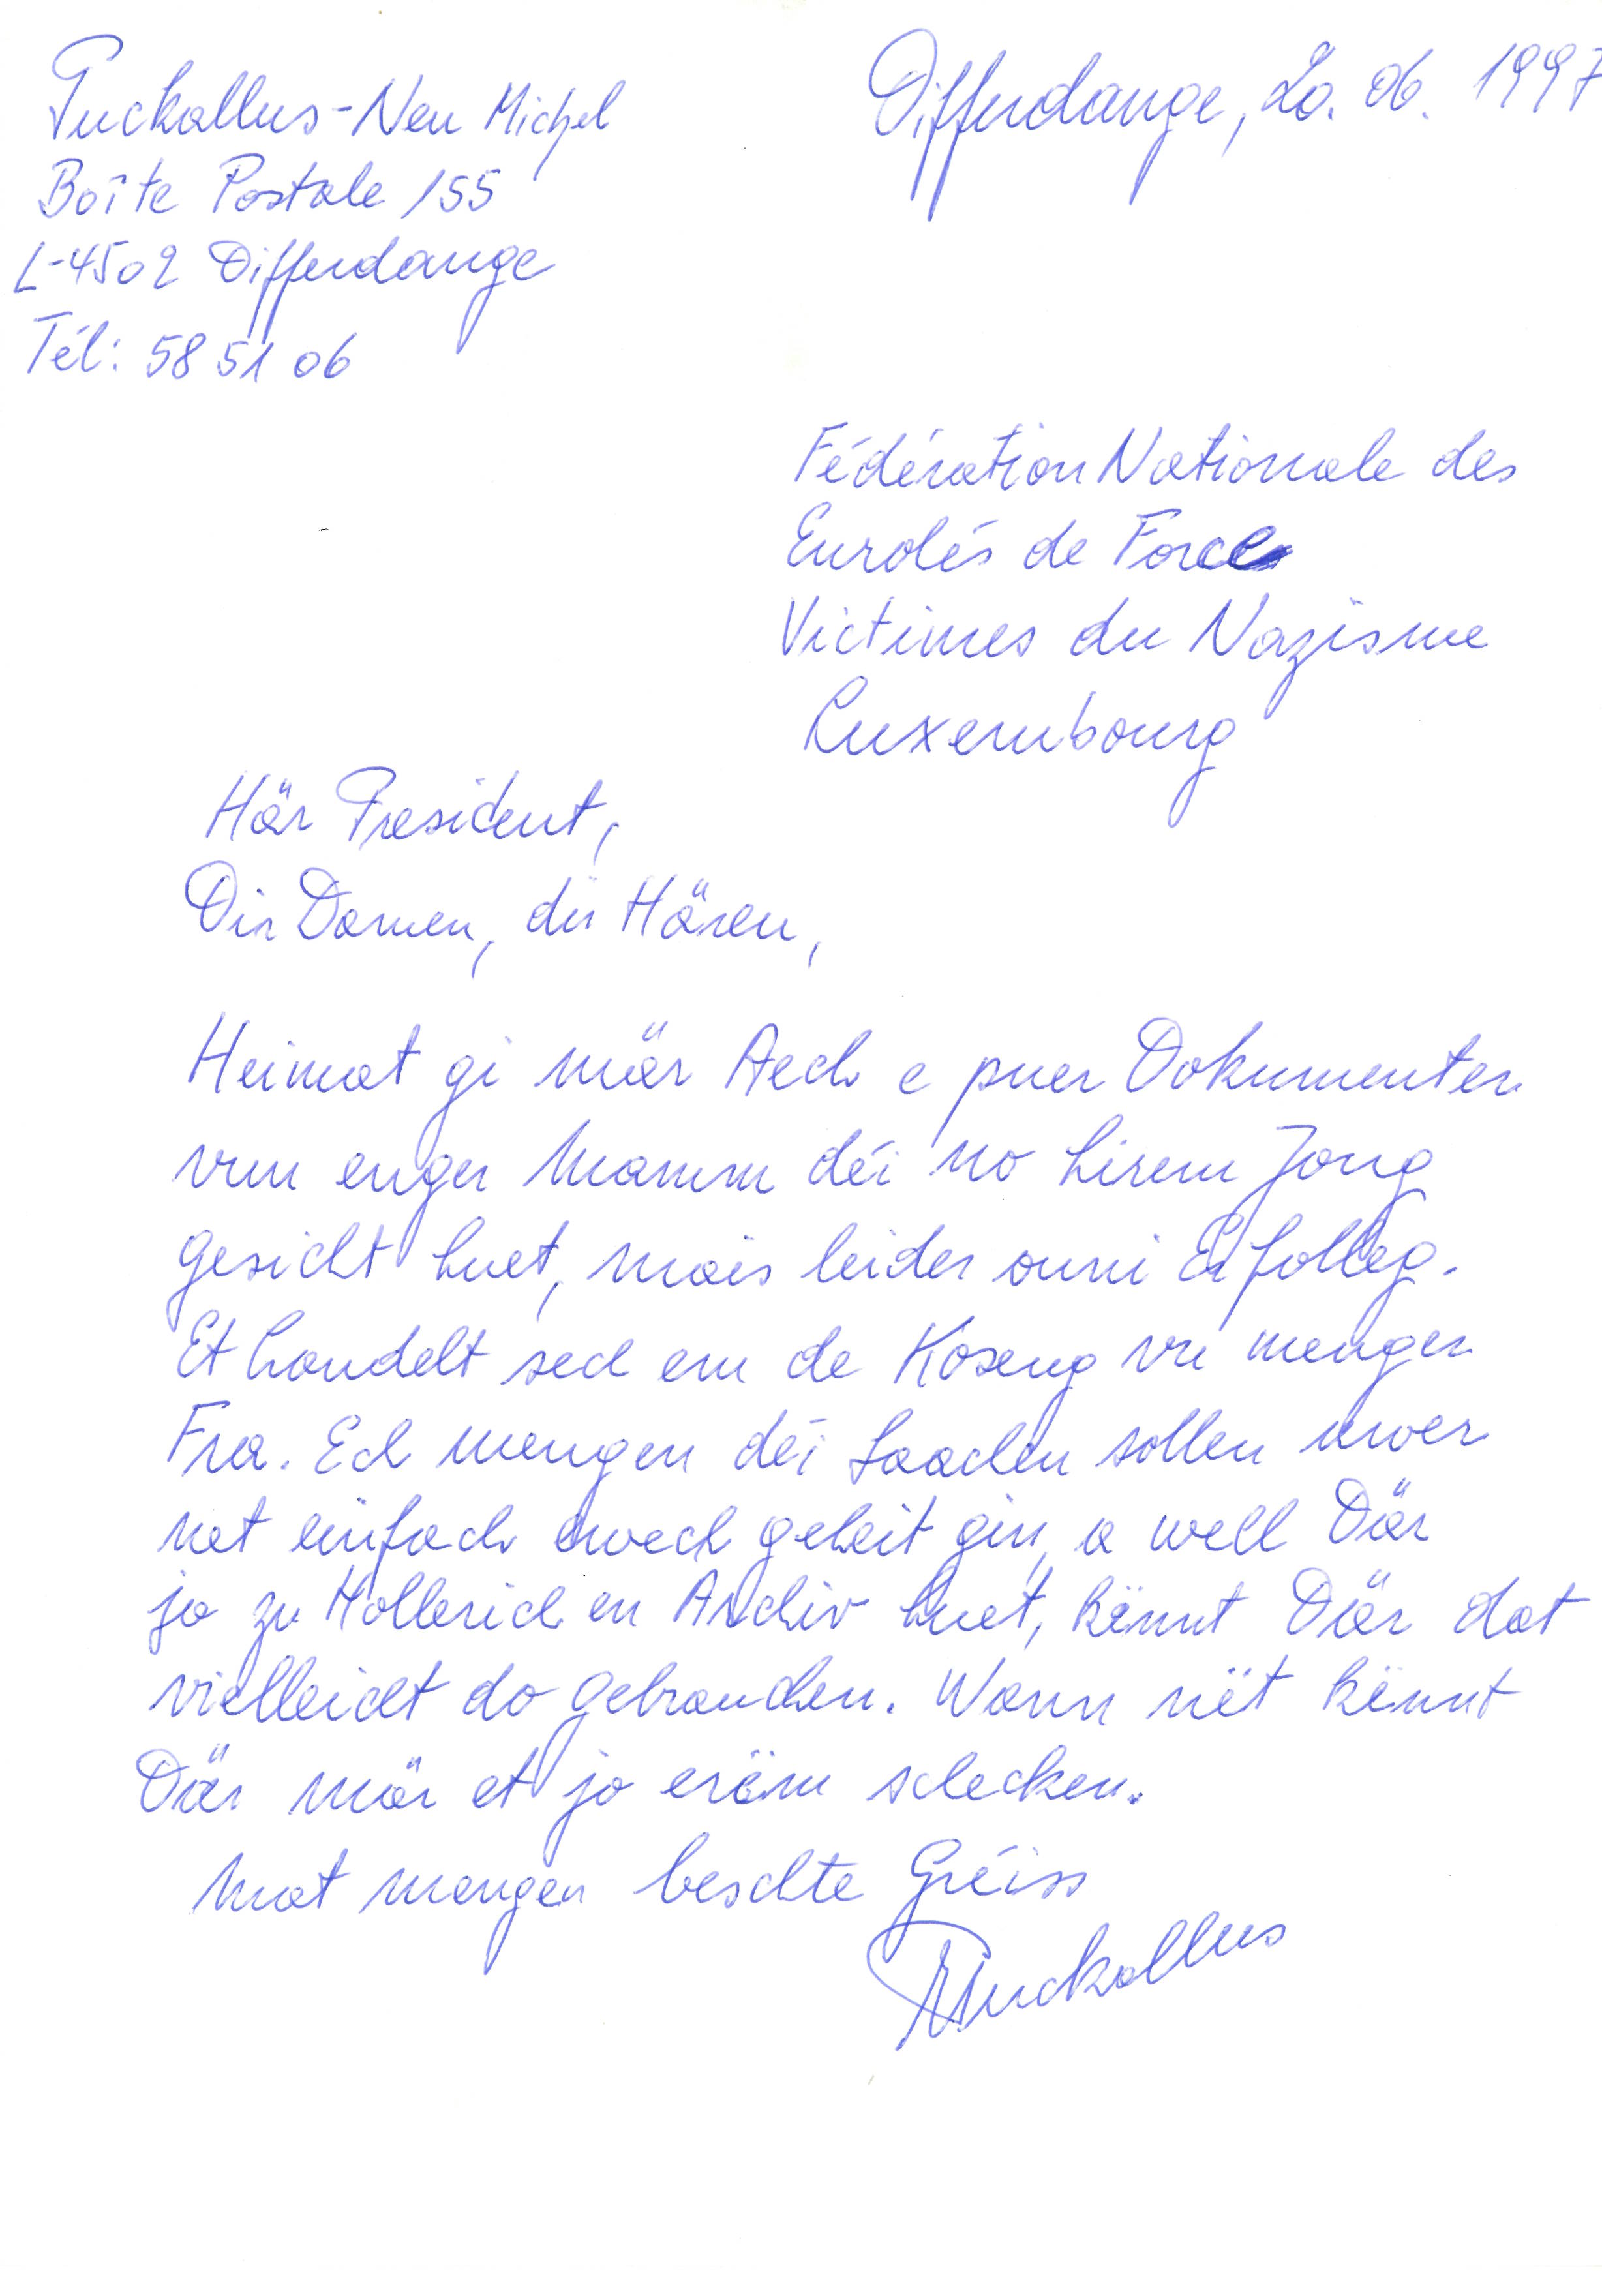 Puckallus-Neu Michel
Boîte Postale 155
L-4502 Differdange
Tél: 58 51 06
Differdange, 20. 06. 1997
Fédération Nationale des
Enrolés de Force
Victimes du Nazisme
Luxembourg
Här President,
Dir Damen, dir Hären,
Heimat gi mär Aech e puer Dokumenter
vun enger Mamm déi no hirem Jong
gesicht huet, mais leider ouni Erfolleg.
Et handelt sech em de Koseng vu menger
Fra. Ech mengen déi Saachen sollen iwer
net einfach ewech geheit gin, a well Där
jo zu Hollerich en Archiv huet, kënnt Där dat
vielleicht do gebrauchen. Wann nët kënnt
Där mär et jo erëm schecken.
Mat mengen beschte Gréiss
Puckallus